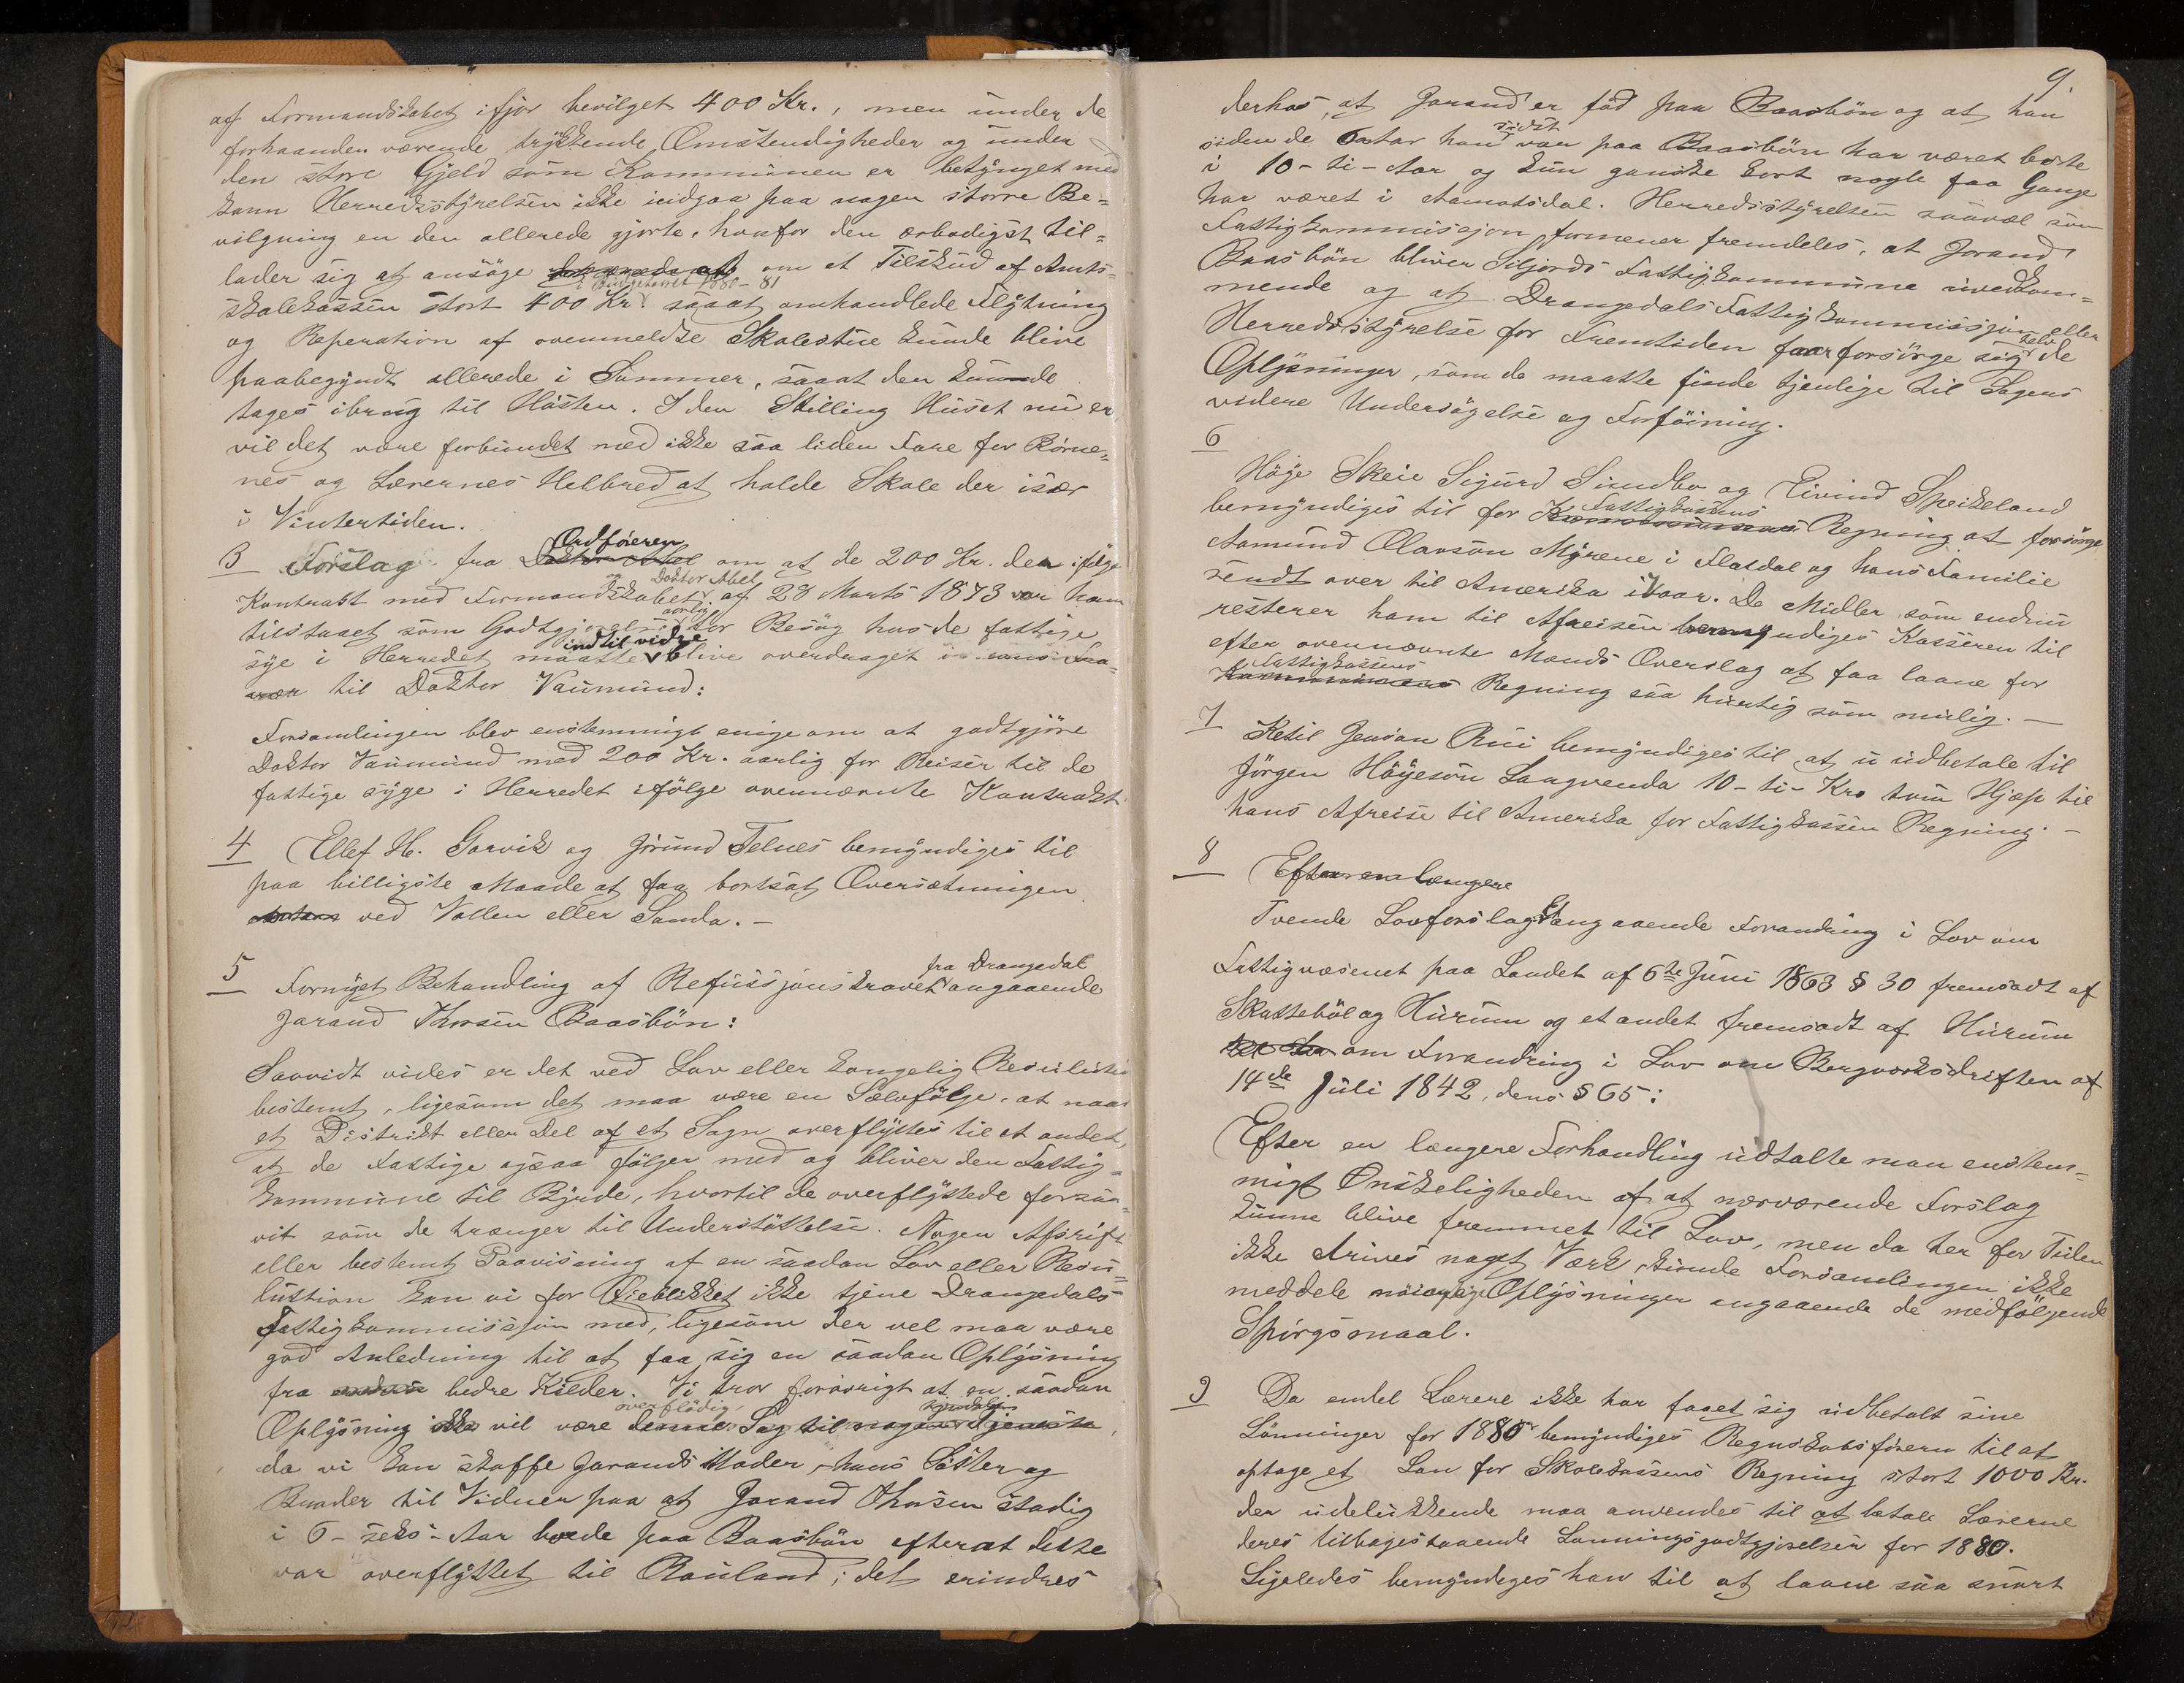 af Formandskabet ifjor bevilget 400 Kr., men under de
forhaanden værende trykkende Omstendigheder og under
den store Gjeld som Kommunen er betynget med
kann Herredsstyrelsen ikke indgaa paa nogen storre Be=
vilgning en den allerede gjorte, hvorfor den ærbødigst til=
lader sig at ansöge om et Tilskud af Amts=
i Budgetaaret 1880-81
skolekassen stort 400 Kr saaat omhandlede Flytning
og Reperation af ovenmeldte Skolestue kunde blive
paabegyndt allerede i Sommer, saaat den kunde
tages ibrug til Hösten. I den Stilling Huset nu er
vil det være forbundet med ikke saa liden Fare for Börne=
nes og Lærernes Helbred at holde Skole der især
i Vintertiden.
Ordföreren
3 Forslag fra Doktor Abel om at de 200 Kr. den ifölge
Doktor Abel
Kontrakt med Formandskabet af 28 Marts 1873 var ham
aarlig
tilstaaet som Godtgjörelse for Besög hos de fattige
indtil vidre
syge i Herredet maatte blive overdraget
til Doktor Vaumund:
Forsamlingen blev enstemmigt enige om at godtgjöre
Doktor Vaumund med 200 Kr. aarlig for Reiser til de
fattige syge i Herredet ifölge ovennævnte Kontrakt
4 Ellef H. Garvik og Jörund Telnes bemyndiges til
paa billigste Maade at faa bortsat Oversætningen
ved Vallen eller Sanda. –
fra Drangedal
5 Fornyet Behandling af Refussjonskravet angaaende
Jarand Thorsen Baasbön:
Saavidt vides er det ved Lov eller kongelig Resolution
bestemt, ligesom det maa være en Selvfölge, at naar
et Distrikt eller Del af et Sogn overflyttes til et andet,
at de Fattige ogsaa fölger med og bliver den Fattig=
kommune til Byrde, hvortil de overflyttede forsaa=
vit som de trænger til Understöttelse. Nogen Afsrift
eller bestemt Paavisning af en saadan Lov eller Reso=
lution kan vi for Öieblikket ikke tjene Drangedals=
Fattigkommissjon med, ligesom der vel maa være
god Anledning til at faa sig en saadan Oplysning
fra bedre Kilder. Vi tror forövrigt at en saadan
overflödig,
Oplysning ikke vil være denne Sag til nogen tjeneste,
da vi kan skaffe Jarands Moder, hans Söster og
Broder til Vidner paa at Jarand Thorsen stadig
i 6 - seks - Aar boede paa Baasbön efterat dette
var overflyttet til Rauland; det erindres
9.
derhos, at Jarand er föd paa Baasbön og at han
sidst
siden de 6 Aar han var paa Baasbön har været borte
i 10 - ti - Aar og kun ganske kort nogle faa Gange
har været i Aamotsdal. Herredsstyrelsen saavæl som
Fattigkommissjon formener fremdeles, at Jorand
Baasbön bliver Siljords Fattigkommune uvedkom=
mende og at Drangedals Fattigkommissjon eller
selv
Herredsstyrelse for Fremtiden faar forsörge sig de
Oplysninger, som de maatte finde tjenlige til Sagens
videre Undersögelse og Forföining.
6
Höye Skeie Sigurd Sundbo og Eivind Speikeland
Fattigkassens
bemyndiges til for Kommunens Regning at forsörge
Aamund Olavsön Myrene i Flatdal og hans Familie
sendt over til Amerika ivaar. De Midler som endnu
resterer ham til Afreisen bemyndiges Kasseren til
efter ovennævnte Mænds Overslag at faa laane for
Fattigkassens
Kommunens Regning saa hurtig som mulig. –
7 Ketil Jensön Rui bemyndiges til at udbetale til
Jörgen Höyesön Langvenda 10 - ti - Kro som Hjælp til
hans Afreise til Amerika for Fattigkassen Regning. –
8 Efter en længere
Tvende Lovforslag Et angaaende Forandring i Lov om
Fattigvæsenet paa Landet af 6te Juni 1863 § 30 fremsadt af
Skatteböl og Hurum og et andet fremsadt af Hurum
om Forandring i Lov om Bergverksdriften af
14de Juli 1842, dens § 65:
Efter en længere Forhandling udtalte man enstem=
migt Önskeligheden af at nærværende Forslag
kunne blive fremmet til Lov, men da her for Tiden
ikke drives noget Værk, kunde Forsamlingen ikke
meddele nöiagtige Oplysninger angaaende de medfölgende
Spörgsmaal.
9 Da endel Lærere ikke har faaet sig udbetalt sine
Lönninger for 1880 bemyndiges Regnskabsföreren til at
optage et Lan for Skolekassens Regning stort 1000 Kr.
der udelukkende maa anvendes til at betale Lærerne
deres tilbagestaaende Lonningsgodtgjörelser for 1880.
Ligeledes bemyndeges han til at laane saa snart